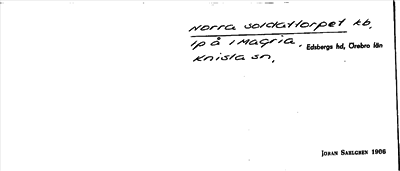 Norra soldattorpet kb.
lp å 1 Magria. Edsbergs hd, Örebro län
Knista sn.
JÖRAN SAHLGREN 1906